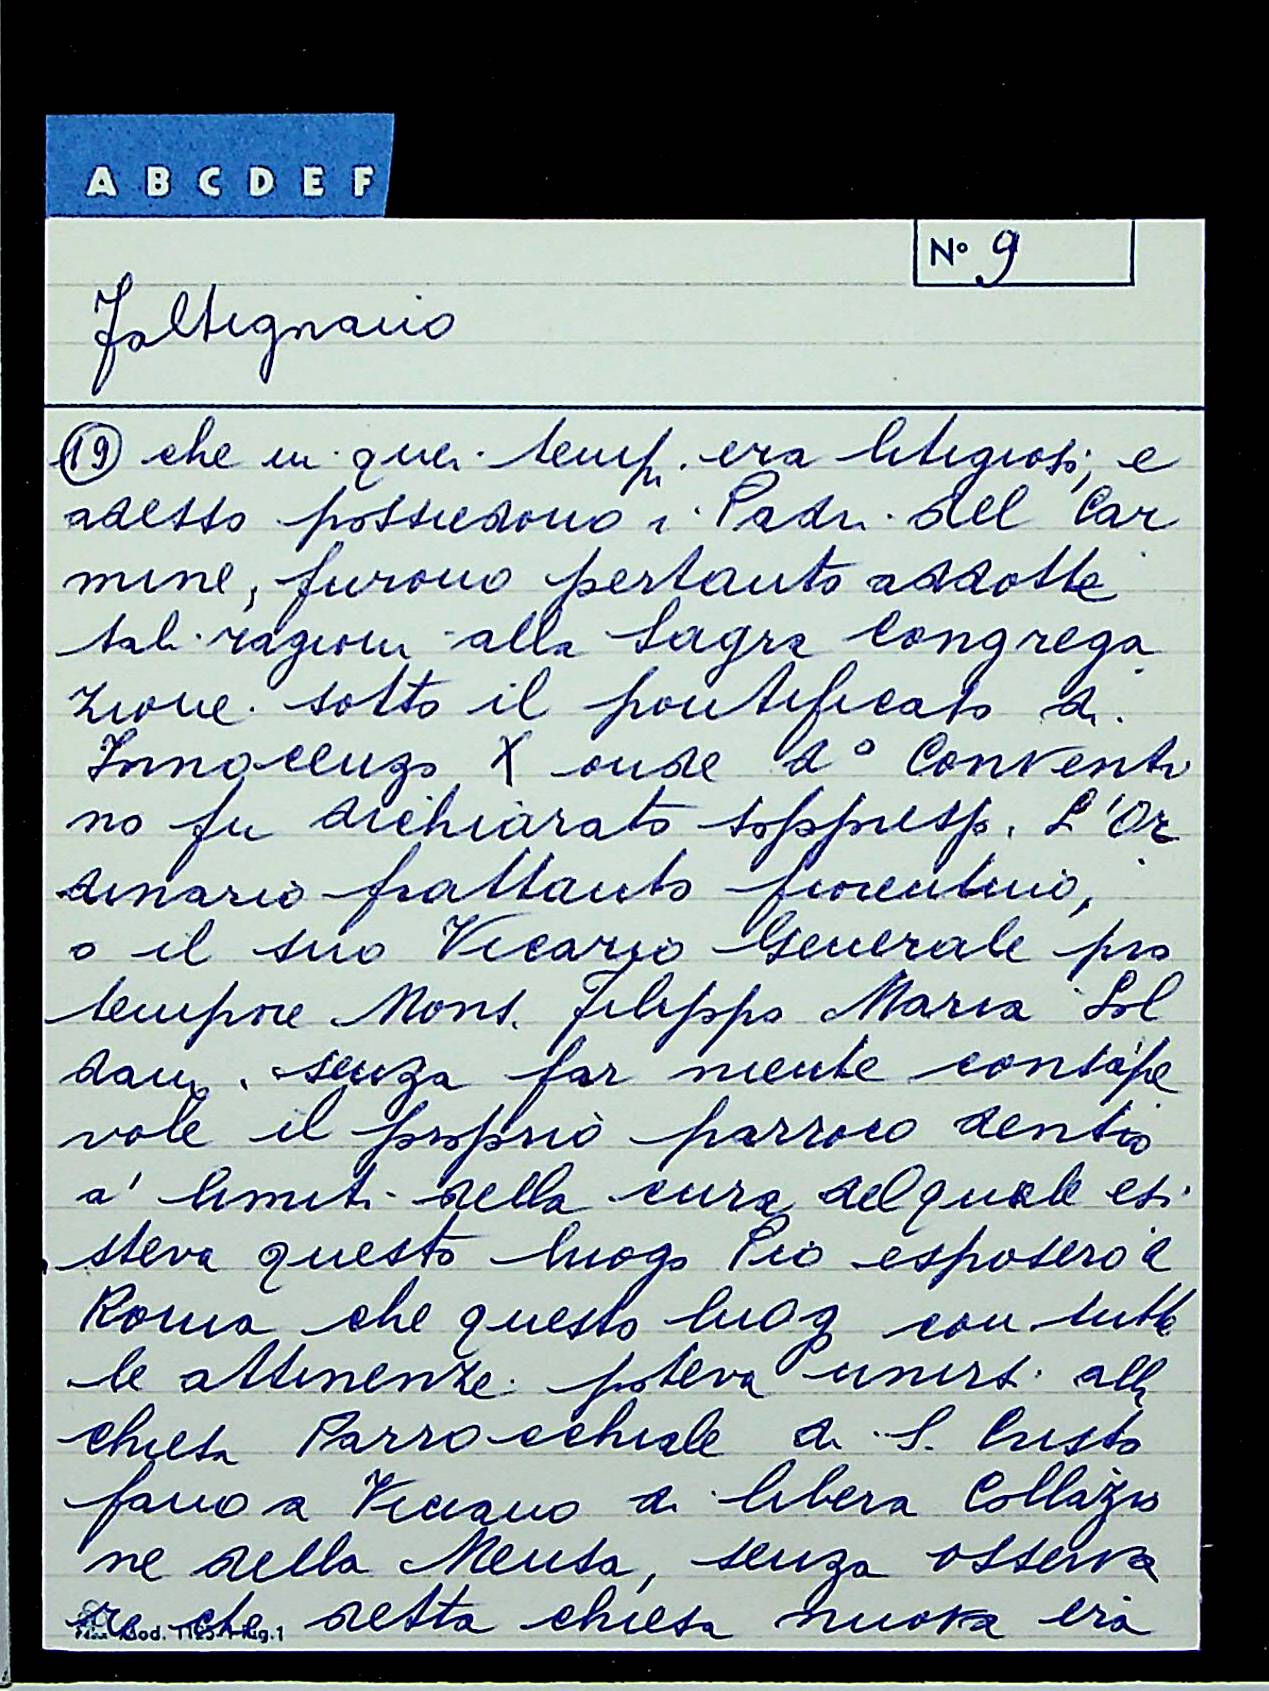 A B C D E F
N° 9
Faltignano
19 che in quei tempi era litigiosi, e
adesso possiedono i Padri del Car
mine, furono pertanto addotte
tali ragioni alla Sagra Congrega
zione sotto il pontificato di
Innocenzo X onde d° Conventi
no fu dichiarato soppresso. L'Or
dinario frattanto fiorentino,
o il suo Vicario Generale pro
tempore Mons. Filippo Maria Sol
dani, senza far niente consape
vole il proprio parroco dentro
a' limiti della cura del quale esi
steva questo luogo Pio esposero a
Roma che questo luogo con tutte
le attinenze poteva unirsi alla
chiesa Parrocchiale di S. Cristo
fano a Viciano di libera Collazio
ne della Mensa, senza osserva
re che detta chiesa nuova era